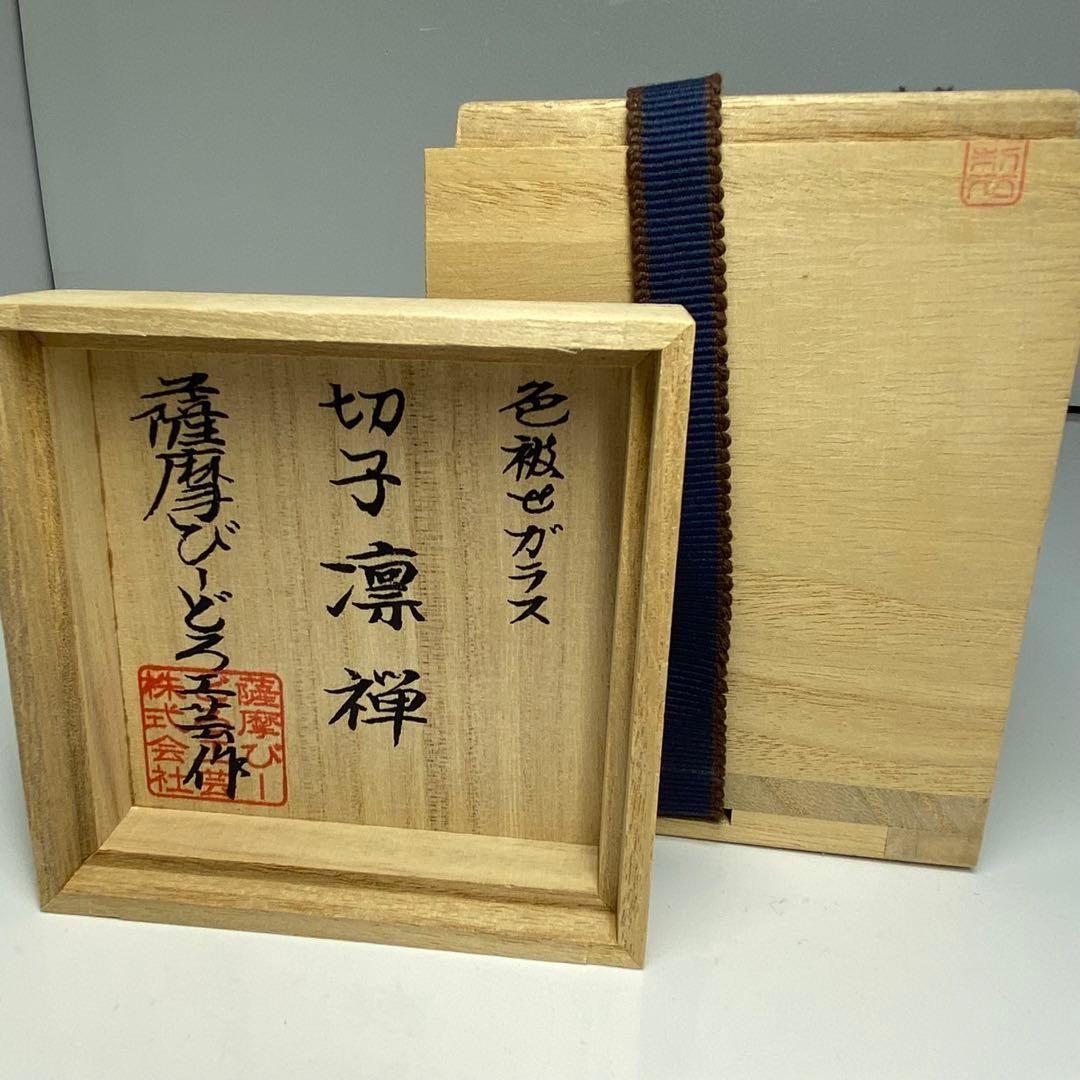 色被せガラス
切子 凛 禅
薩摩びーどろ工芸作
薩摩びー
どろ工芸
株式会社